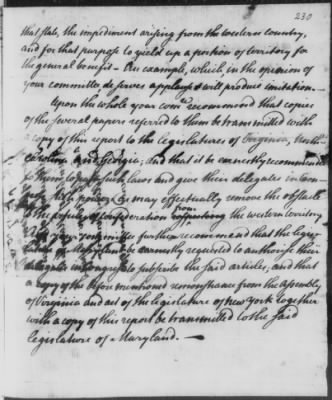 230
that state, the impediment arising from the western country,
and for that purpose to yield up a portion of territory for
the general benefit - An example, which in the opinion of
your committee deserves applause & will produce imitation.-
Upon the whole your comee recommend that copies
of the several papers referred to them be transmitted with
a copy of this report to the legislatures of Virginia, North-
Carolina and Georgia; and that it be earnestly recommended
to them, to pass such laws and give their delegates in Con-
gress such powers as may effectually remove the obstacle
to the confederation respecting the western territory
And your committee further recommend that the legis-
lature of Maryland be earnestly requested to authorise their
delegates in congress to subscribe the said articles, and that
a copy of the before mentioned remonstrance from the assembly
of Virginia and act of the legislature of New York together
with a copy of this report be transmitted to the said
legislature of Maryland. -